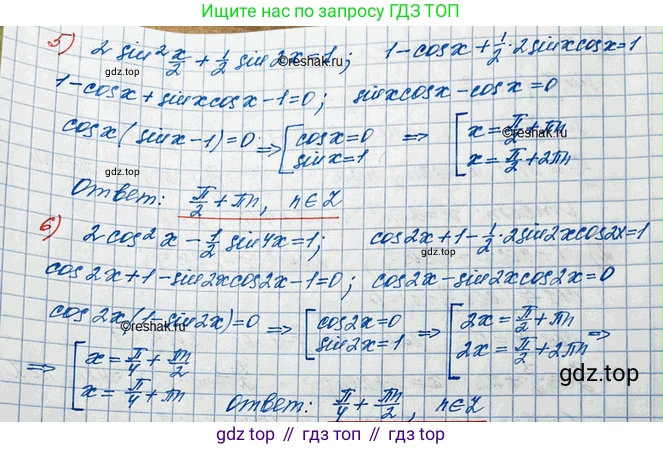 Ищите решения по запросу ГДЗ ТОП
5) 2 sin² x/2 + 1/2 sin 2x = 1; 1 - cos x + 1/2 · 2 sin x cos x = 1
gdz.top
©reshak.ru
1 - cos x + sin x cos x - 1 = 0; sin x cos x - cos x = 0
cos x (sin x - 1) = 0 ⇒ [ cos x = 0 sin x = 1 ⇒ [ x = π/2 + πn x = π/2 + 2πn
©reshak.ru
gdz.top
Ответ: π/2 + πn, n ∈ Z
6) 2 cos² x - 1/2 sin 4x = 1; cos 2x + 1 - 1/2 · 2 sin 2x cos 2x = 1
gdz.top
cos 2x + 1 - sin 2x cos 2x - 1 = 0; cos 2x - sin 2x cos 2x = 0
cos 2x (1 - sin 2x) = 0 ⇒ [ cos 2x = 0 sin 2x = 1 ⇒ [ 2x = π/2 + πn 2x = π/2 + 2πn ⇒
©reshak.ru
⇒ [ x = π/4 + πn/2 x = π/4 + πn
gdz.top
Ответ: π/4 + πn/2, n ∈ Z
gdz top // гдз топ // gdz.top